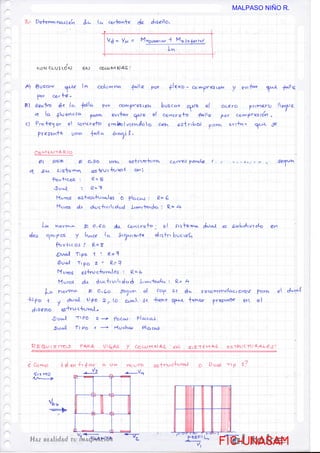 MALPASO NIÑO R.
2.- Determinación de la cortante de diseño.
Vd = Vu = Msuperior + Minferior
Ln
CONCLUSIÓN EN COLUMNAS:
A) Buscar que la columna falle por flexo-compresión y evitar que falle
por corte.
B) dentro de la falla por compresión buscar que el acero primero llegue
a la fluencia para evitar que el concreto falle por compresión.
C) Proteger el concreto con estribos para evitar que se
presente una falla frágil.
COMENTARIO
el E.060 una estructura corresponde según
a su sistema estructural en:
Porticos : R=8
Dual : R=7
Muros estructurales o Placas : R=6
Muros de ductilidad Limitada : R=4
La norma E.060 de Concreto; el sistema dual es subdividido en
dos grupos y hace la siguiente distribución
Porticos : R=8
Dual Tipo 1 : R=7
Dual Tipo 2 : R=7
Muros estructurales : R=6
Muros de ductilidad Limitada : R=4
La norma E.060 según el cap 21 da recomendaciones para el dual
tipo 1 y dual tipo 2, lo cual se tiene que tener presente en el
diseño estructural.
Dual Tipo 2 → Pocas Placas
Dual Tipo 1 → Muchas Placas
REQUISITOS PARA VIGAS Y COLUMNAS EN SISTEMAS ESTRUCTURALES:
¿Como identificar a un muro estructural o Dual Tipo I?
SISMO
Haz realidad tu
FIC-UNASAM